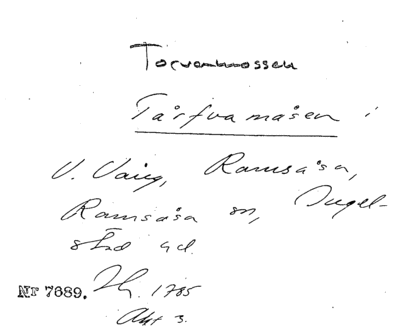 Torvamossen
Tårfva måsen i
V. Väng, Ramsåsa,
Ramsåsa sn, Ingel-
stad hd.
Nr 7689. 1785
Akt 3.